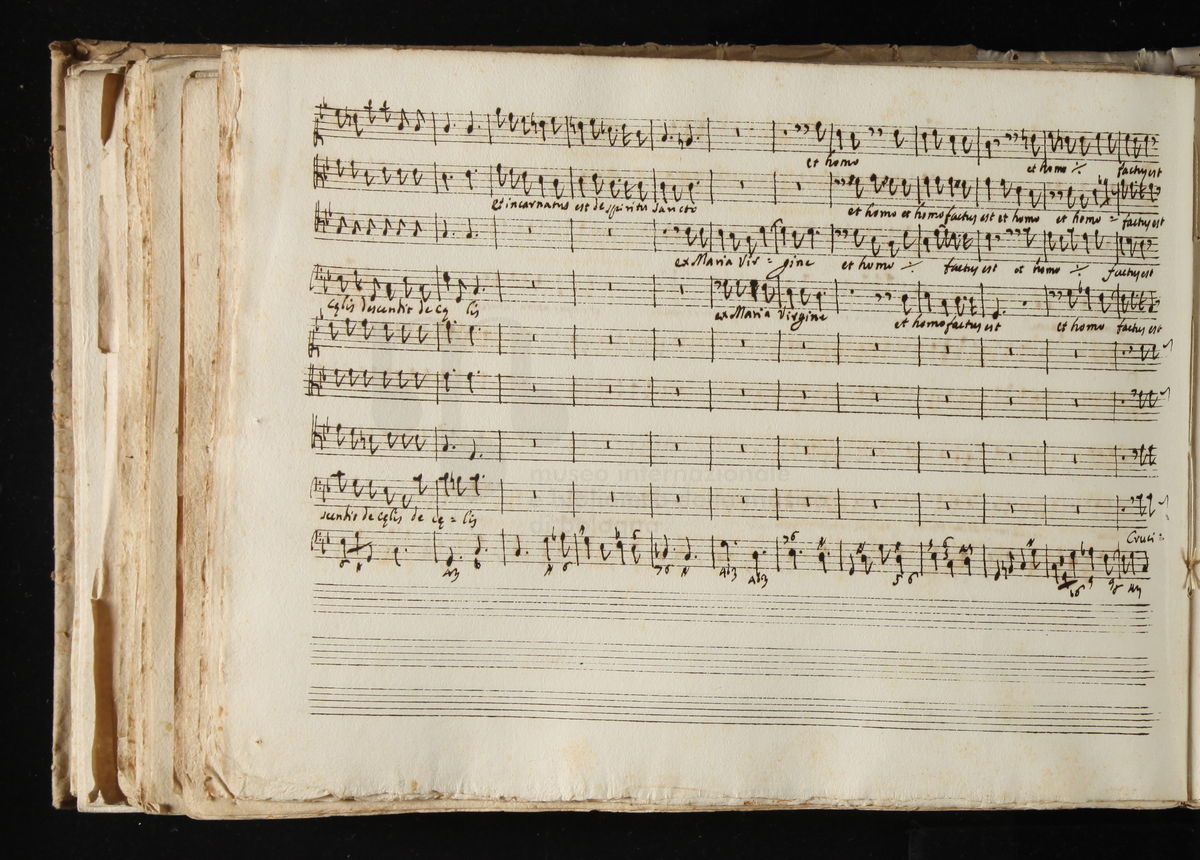 et homo et homo factus est
et incarnatus est de spiritu sancto et homo et homo factus est et homo et homo = factus est
ex Maria Vir = gine et homo factus est et homo factus est
Cęlis descentit de Cę lis ex Maria Virgine et homo factus est et homo factus est
scentit de Cęlis de Cę = lis
Cruci =
museo internazionale